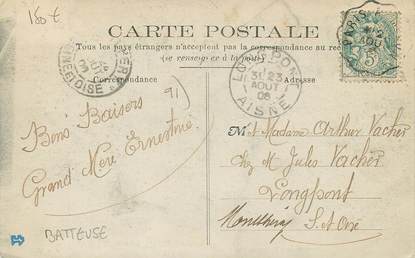 150 €
CARTE POSTALE
Tous les pays étrangers n'acceptent pas la correspondance au rec
(se renseigner à la poste)
Correspondance
Adresse
LONGPONT
31 23
AOUT
08
AISNE
PARIS
5
SEINE-ET-OISE
91)
Bons Baisers
Grand Mère Ernestine
M et Madame Arthur Vacher
chez M Jules Vacher
Longpont
Montlhéry S. et Oise
BATTEUSE